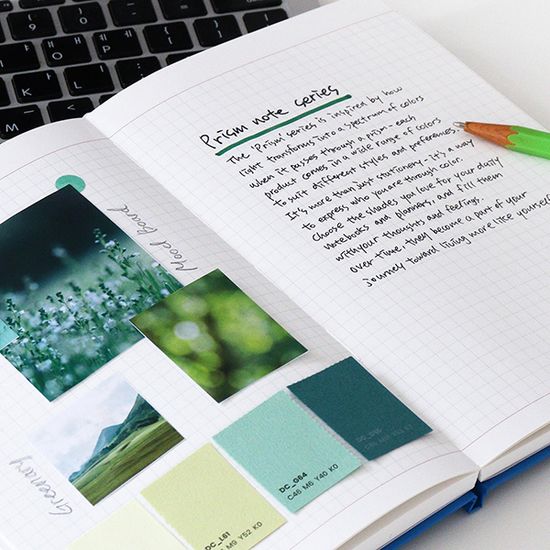 Prism note series
The 'Prism' series is inspired by how
light transforms into a spectrum of colors
when it passes through a prism - each
product comes in a wide range of colors
to suit different styles and preferences.
It's more than just stationery - it's a way
to express who you are through color.
Choose the shades you love for your daily
notebooks and planners, and fill them
with your thoughts and feelings.
Over time, they become a part of your
journey toward living more like yourself
Mood board
Greenery
DC_064
C46 M6 Y40 K0
DC_L61
M9 Y52 K0